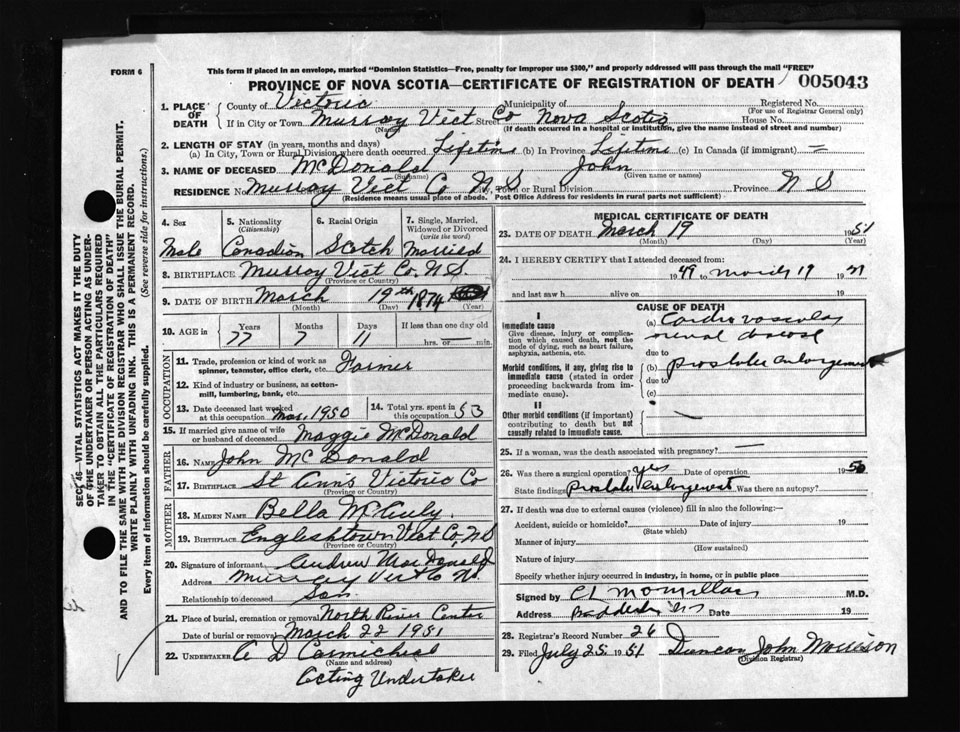 FORM 6
This form if placed in an envelope, marked "Dominion Statistics—Free, penalty for improper use $300," and properly addressed will pass through the mail "FREE"
PROVINCE OF NOVA SCOTIA—CERTIFICATE OF REGISTRATION OF DEATH 005043
1. PLACE OF DEATH County of Victoria Municipality of Registered No.
(For use of Registrar General only)
If in City or Town Murray Vict Co Nova Scotia Street House No.
(Name) (If death occurred in a hospital or institution, give the name instead of street and number)
2. LENGTH OF STAY (in years, months and days)
(a) In City, Town or Rural Division where death occurred Lifetime (b) In Province Lifetime (c) In Canada (if immigrant) =
3. NAME OF DECEASED McDonald John
(Surname) (Given name or names)
RESIDENCE No. Murray Vict Co N S City, Town or Rural Division Province N S
(Residence means usual place of abode. Post Office Address for residents in rural parts not sufficient)
4. Sex Male
5. Nationality (Citizenship) Canadian
6. Racial Origin Scotch
7. Single, Married, Widowed or Divorced (write the word) Married
8. BIRTHPLACE Murray Vict Co. N.S.
(Province or Country)
9. DATE OF BIRTH March 19th 1874
(Month) (Day) (Year)
10. AGE in Years Months Days If less than one day old
77 7 11 hrs. or min.
OCCUPATION
11. Trade, profession or kind of work as spinner, teamster, office clerk, etc. Farmer
12. Kind of industry or business, as cotton-mill, lumbering, bank, etc.
13. Date deceased last worked at this occupation Mar. 1950
14. Total yrs. spent in this occupation 53
15. If married give name of wife or husband of deceased Maggie McDonald
FATHER
16. NAME John McDonald
17. BIRTHPLACE St Anns Victoria Co
(Province or Country)
MOTHER
18. MAIDEN NAME Bella McAuly
19. BIRTHPLACE Englishtown Vict Co, N S
(Province or Country)
20. Signature of informant Andrew MacDonald
Address Murray Vict Co N.S.
Relationship to deceased Son
21. Place of burial, cremation or removal North River Center
Date of burial or removal March 22 1951
22. UNDERTAKER A D Carmichael
(Name and address)
Acting Undertaker
MEDICAL CERTIFICATE OF DEATH
23. DATE OF DEATH March 19 1951
(Month) (Day) (Year)
24. I HEREBY CERTIFY that I attended deceased from:
1949 to March 19 19
and last saw h alive on 19
CAUSE OF DEATH
I
Immediate cause
Give disease, injury or complication which caused death, not the mode of dying, such as heart failure, asphyxia, asthenia, etc.
(a) Cardio vascular renal disease
due to
Morbid conditions, if any, giving rise to immediate cause (stated in order proceeding backwards from immediate cause).
(b) prostate enlargement
due to
(c)
II
Other morbid conditions (if important) contributing to death but not causally related to immediate cause.
25. If a woman, was the death associated with pregnancy?
26. Was there a surgical operation? yes Date of operation 1950
State findings prostate enlargement Was there an autopsy?
27. If death was due to external causes (violence) fill in also the following:—
Accident, suicide or homicide? Date of injury 19
(State which)
Manner of injury
(How sustained)
Nature of injury
Specify whether injury occurred in industry, in home, or in public place
Signed by C L McMillan M.D.
Address Baddeck NS Date 19
28. Registrar's Record Number 26
29. Filed July 25 1951 Duncan John Morrison
(Division Registrar)
SEC. 46—VITAL STATISTICS ACT MAKES IT THE DUTY
OF THE UNDERTAKER OR PERSON ACTING AS UNDER-
TAKER TO OBTAIN ALL THE PARTICULARS REQUIRED
IN THE "CERTIFICATE OF REGISTRATION OF DEATH"
AND TO FILE THE SAME WITH THE DIVISION REGISTRAR WHO SHALL ISSUE THE BURIAL PERMIT.
WRITE PLAINLY WITH UNFADING INK. THIS IS A PERMANENT RECORD.
Every item of information should be carefully supplied. (See reverse side for instructions.)